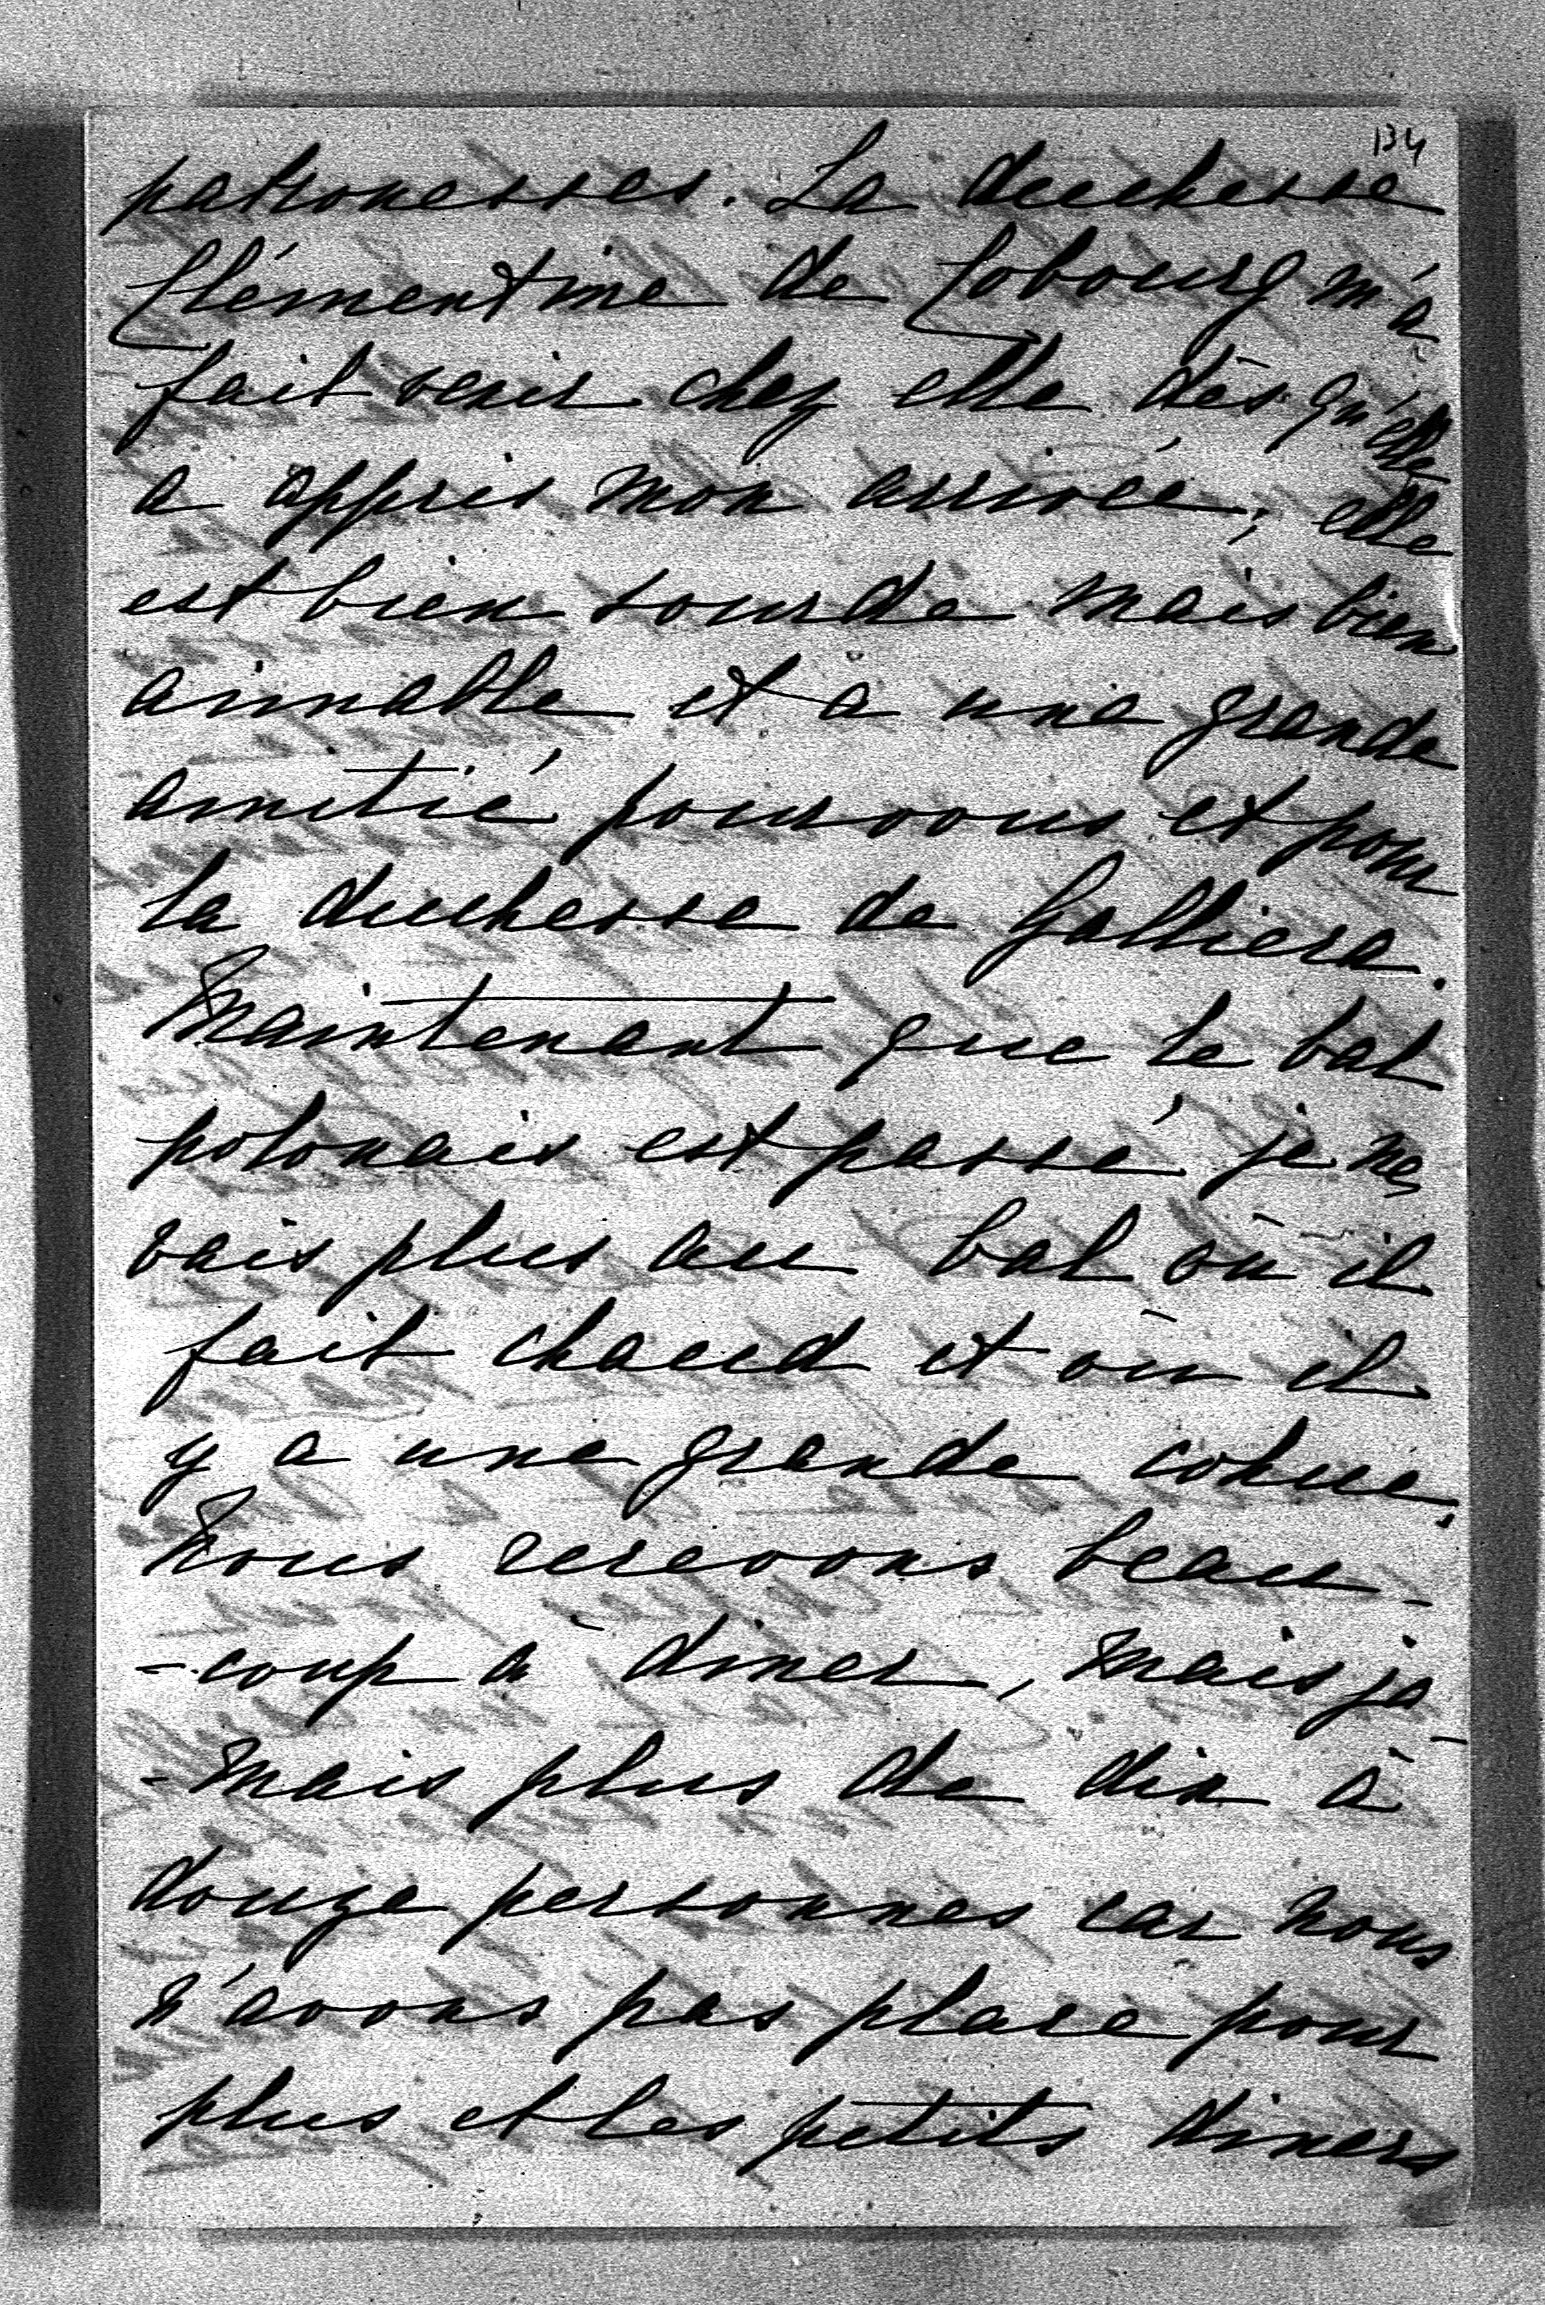 134
patronesses. La duchesse
Clémentine de Cobourg m'a
fait venir chez elle dès qu'elle
a appris mon arrivée; elle
est bien sourde mais bien
aimable et a une grande
amitié pour vous et pour
la duchesse de Galliera.
Maintenant que le bal
polonais est passé je ne
vais plus au bal où il
fait chaud et où il
y a une grande cohue.
Nous recevons beau-
-coup à diner, mais ja-
-mais plus de dix à
douze personnes car nous
n'avons pas place pour
plus et les petits diners